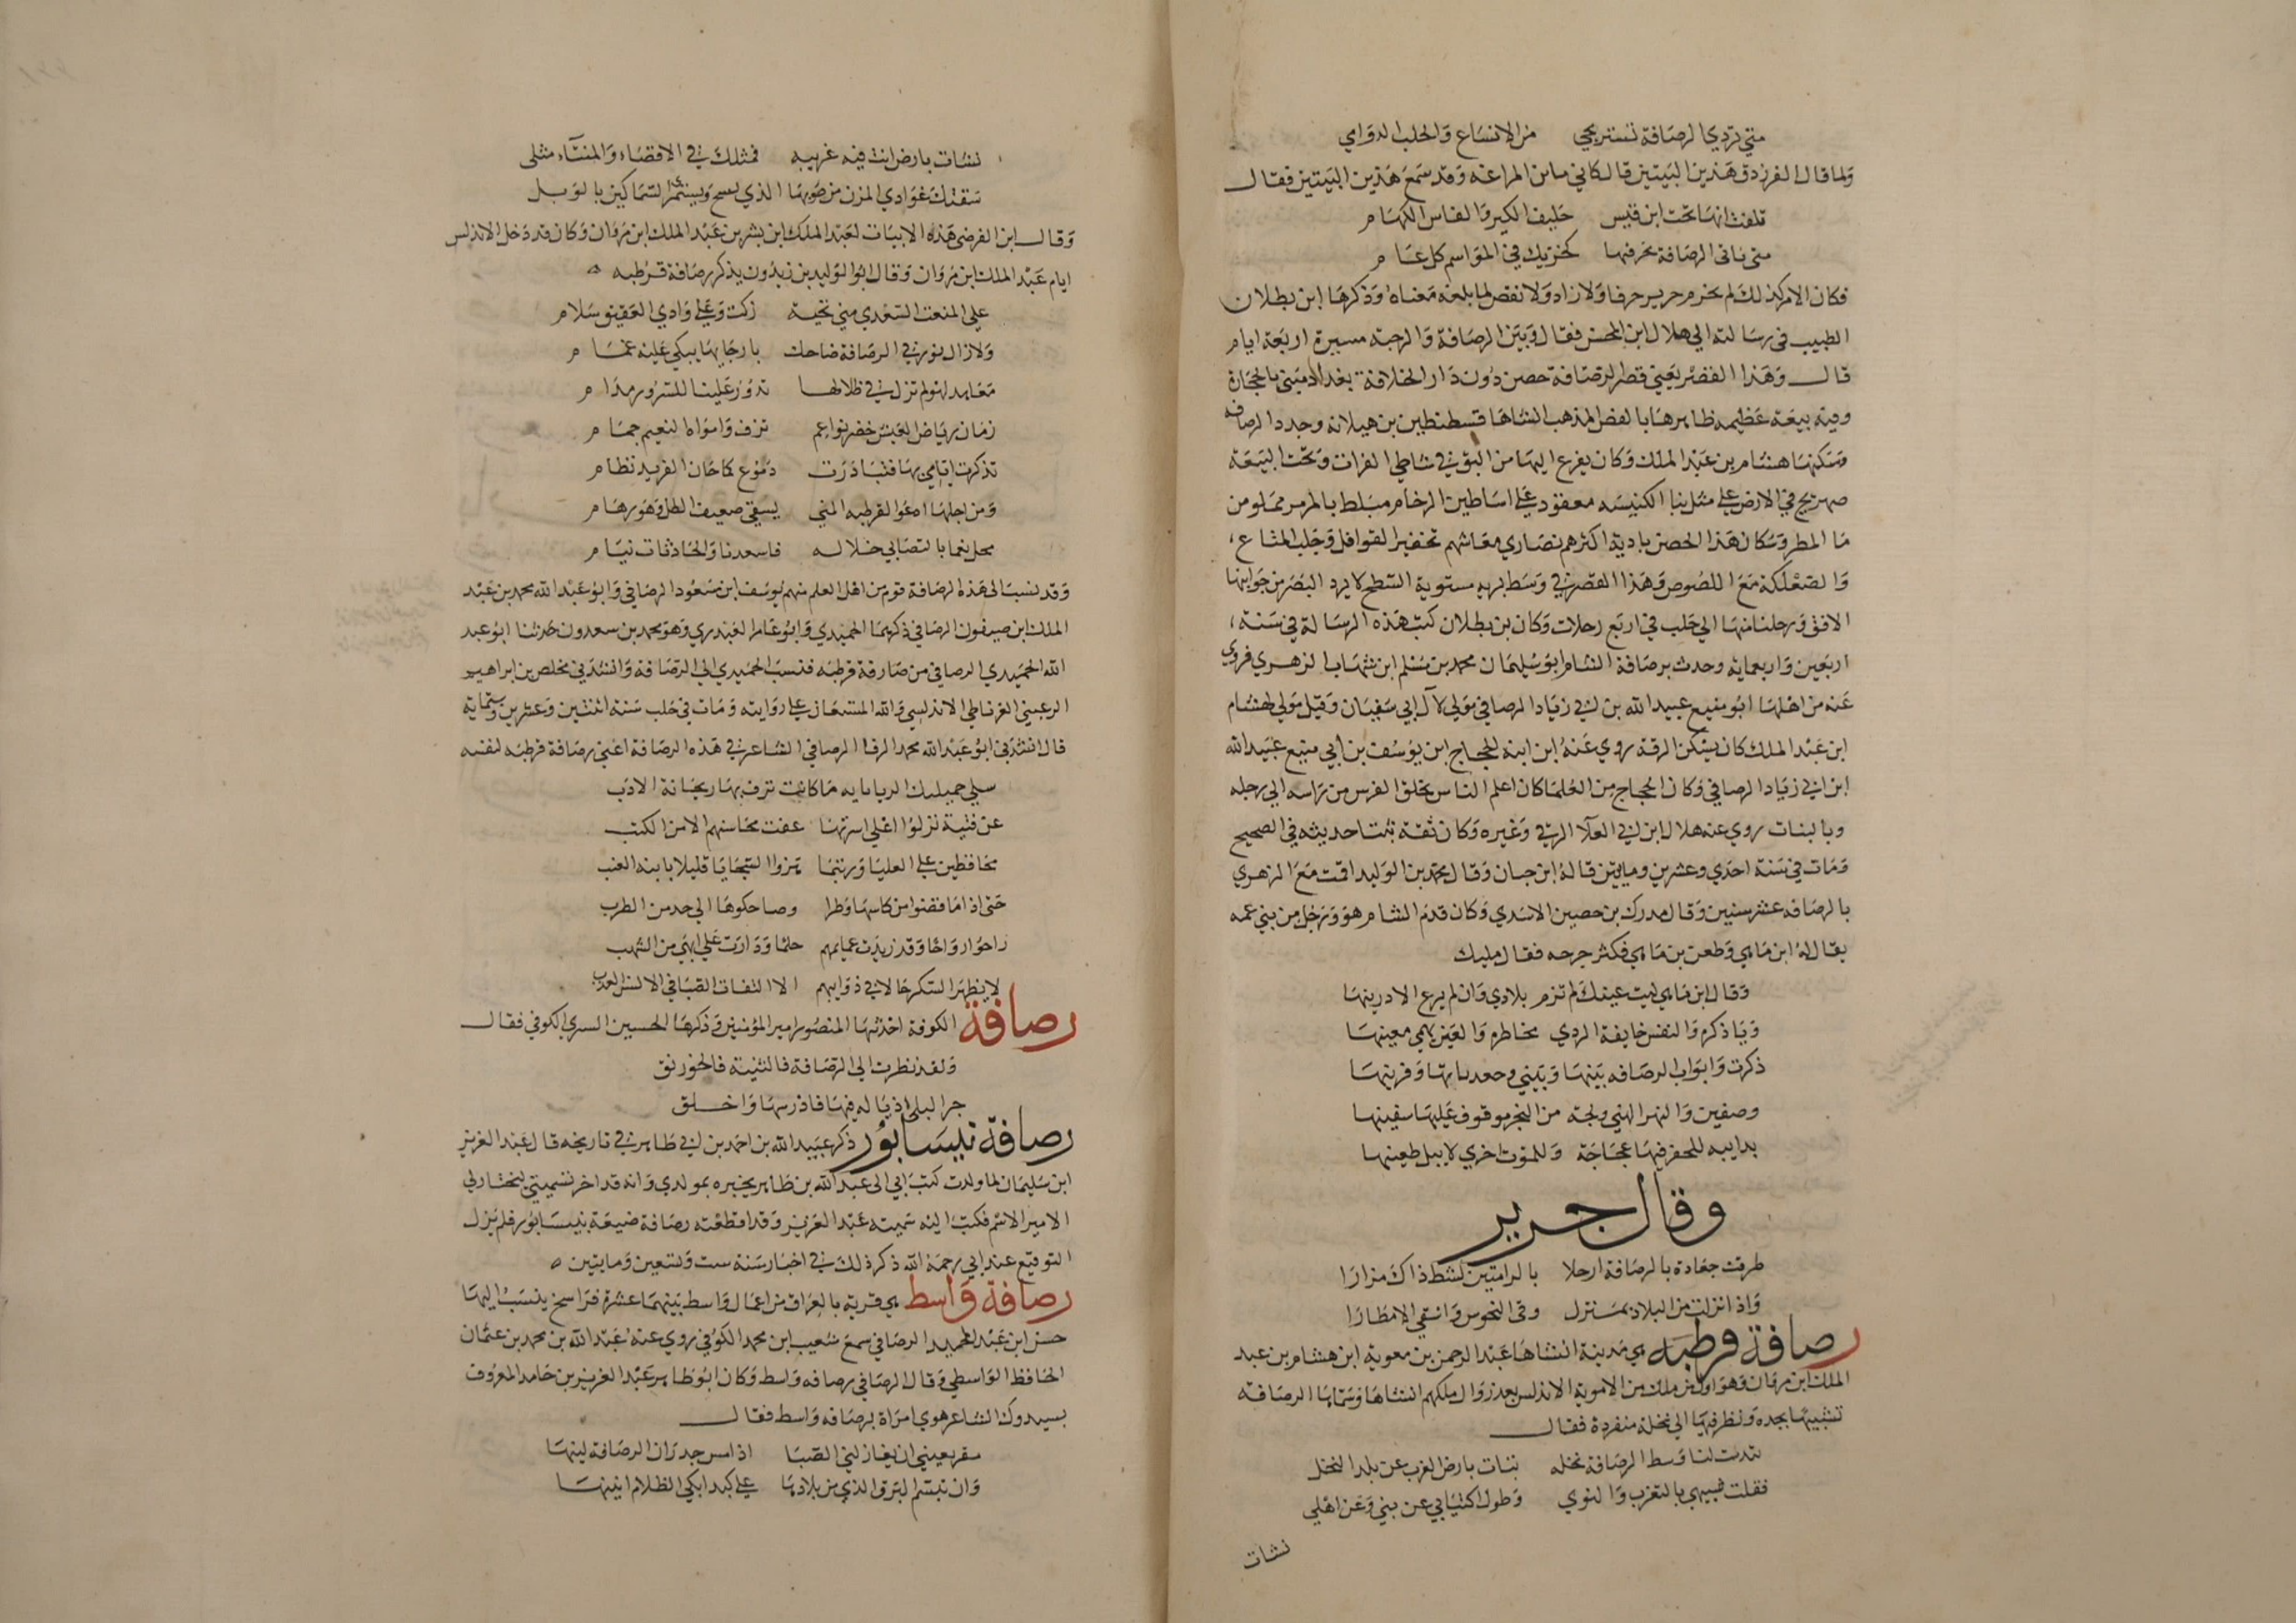 متي تردي الرصافة تستريحي من الانساع والجلب الدوامي
ولما قال الفرزدق هذين البيتين قال كاني بابن المراغه وقد سمع هذين البيتين فقال
تلفت انها تحت ابن قيس حليف الكير والفاس الكهام
متي تاتي الرصافة تخز فيها كخزيك في المواسم كل عام
فكان الامر كذلك لم يخرم جرير حرفا ولا زاد ولا نقص لما بلغه معناه وذكرها ابن بطلان
الطبيب في رسالته الي هلال ابن المحسن فقال وبين الرصافة والرحبة مسيرة اربعة ايام
قال وهذا القصر يعني قصر الرصافة حصن دون دار الخلافة ببغداد مبني بالحجارة
وفيه بيعة عظيمه ظاهرها بالفص المذهب انشاها قسطنطين بن هيلانه وجدد الرصافه
وسكنها هشام بن عبد الملك وكان يفزع اليها من البق في شاطي الفرات وتحت البيعة
صهريج في الارض علي مثل بنا الكنيسه معقود علي اساطين الرخام مبلط بالمرمر مملو من
ما المطر وسكان هذا الحصن بادية اكثرهم نصاري معاشهم تخفير القوافل وجلب المتاع
والصعلكة مع اللصوص وهذا القصر في وسط بريه مستوية السطح لا يرد البصر من جوانبها
الافق ورحلنا منها الي حلب في اربع رحلات وكان بن بطلان كتب هذه الرسالة في سنة
اربعين واربعمايه وحدث برصافة الشام ابو سليمان محمد بن مسلم ابن شهاب الزهري فروي
عنه من اهلها ابو منيع عبيد الله بن ابي زياد الرصافي مولي لآل ابي سفيان وقيل مولي لهشام
ابن عبد الملك كان يسكن الرقة روي عنه ابن ابنه الحجاج ابن يوسف بن ابي منيع عبيد الله
ابن ابي زياد الرصافي وكان الحجاج من العلما كان اعلم الناس بخلق الفرس من راسه الي رجله
وبالنبات روي عنه هلال ابن ابي العلا الرقي وغيره وكان ثقة ثبتا حديثه في الصحيح
ومات في سنة احدي وعشرين ومايتين قاله ابن حبان وقال محمد بن الوليد اقمت مع الزهري
بالرصافه عشر سنين وقال مدرك بن حصين الاسدي وكان قدم الشام هو ورجل من بني عمه
يقال له ابن ماهي وطعن بن ماهي فكثر جرحه فقال
وقال ابن ماهي ليت عينك لم ترم بلادي وان لم يرع الا درينها
ويا ذكره والنفس خايفة الردي مخاطره والعين يهمي معينها
ذكرت وابواب الرصافه بينها وبيني وقرينها
وصفين والنهر الهني ولجة من البحر موقوف عليها سفينها
بدابيه للحفر فيها عجاجة وللموت اخري لا يبل طعينها
وقال جرير
طرقت جعادة بالرصافة ارحلا بالرامتين لشط ذاك مزارا
واذا نزلت من البلاد بمنزل وقي النحوس واسقي الامطارا
رصافة قرطبه هي مدينة انشاها عبد الرحمن بن معوية ابن هشام بن عبد
الملك ابن مروان وهو اول من ملك من الاموية الاندلس بعد زوال ملكهم انشاها وسماها الرصافة
تشبيها بجده ونظر فيها الي نخلة منفردة فقال
تبدت لنا وسط الرصافة نخله تنات بارض الغرب عن بلد النخل
فقلت شبيهي بالتغرب والنوي وطول اكتيابي عن بني وعن اهلي
نشات
نشات بارض انت فيه غريبه فمثلك في الاقصاء والمنتاء مثلي
سقتك غوادي المزن من صوبها الذي يسح ويستمري السماكين بالوبل
وقال ابن الفرضي هذه الابيات لعبد الملك ابن بشر بن عبد الملك ابن مروان وكان قد دخل الاندلس
ايام عبد الملك ابن مروان وقال ابو الوليد بن زيدون يذكر رصافة قرطبه
علي المنعت السعدي مني تحية زكت وعلي وادي العقيق سلام
ولا زال نور في الرصافة ضاحك بارجايها يبكي عليه غمام
معاهد لهو لم تزل في ظلالها تدور علينا للسرور مدام
زمان رياض العيش خضر نواعم ترف وامواه النعيم جمام
تذكرت ايامي بها فتبادرت دموع كما خان الفريد نظام
ومن اجلها ادعوا لقرطبه المني يسقي ضعيف الطل وهو رهام
محل نعما بالتصابي خلاله فاسعدنا والحادثات نيام
وقد نسب الي هذه الرصافة قوم من اهل العلم منهم يوسف ابن مسعود الرصافي وابو عبد الله محمد بن عبد
الملك ابن صيفون الرصافي ذكرهما الحميدي وابو عامر العبدري وهو محمد بن سعدون حدثنا ابو عبد
الله الحميدي الرصافي من رصافة قرطبه فنسب الحميدي الي الرصافة وانشدني مخلص بن ابراهيم
الرعيني الغرناطي الاندلسي والله المستعان علي روايته ومات في حلب سنة اثنتين وعشرين وستماية
قال انشدني ابو عبد الله محمد الرفا الرصافي الشاعر في هذه الرصافة اعني رصافة قرطبه لنفسه
سلي خميلتك الريا بايه ما كانت ترف بها ريحانة الادب
عن فتية نزلوا اعلي اسرتها عفت محاسنهم الا من الكتب
محافظين علي العليا وربتما هزوا السجايا قليلا بابنه العنب
حتي اذا ما قضوا من كاسها وطرا وضاحكوها الي حد من الطرب
راحوا رواحا وقد زيدت عمايمهم حلما ودارت علي ابهي من الشهب
لا يظهر السكر حالا في ذوايبهم الا التفات الصبا في الالسن العذب
رصافة الكوفة احدثها المنصور امير المؤمنين وذكرها الحسين السري الكوفي فقال
ولقد نظرت الي الرصافة فالثنية فالخورنق
جر البلي اذياله فيها فادرسها واخلق
رصافة نيسابور ذكر عبيد الله بن احمد بن ابي طاهر في تاريخه قال عبد العزيز
ابن سليمان لما ولدت كتب ابي الي عبد الله بن طاهر يخبره بمولدي وانه قد اخر تسميتي ليختار لي
الامير الاسم فكتب اليه سميته عبد العزيز وقد اقطعته رصافة ضيعة بنيسابور فلم يزل
التوقيع عند ابي رحمة الله ذكر ذلك في اخبار سنة ست وتسعين ومايتين
رصافة واسط هي قرية بالعراق من اعمال واسط بينهما عشرة فراسخ ينسب اليها
حسن ابن عبد المجيد الرصافي سمع شعيب ابن محمد الكوفي روي عنه عبد الله بن محمد بن عثمان
الحافظ الواسطي وقال الرصافي رصافه واسط وكان ابو طاهر عبد العزيز بن حامد المعروف
بسيدوك الشاعر هوي امراة برصافه واسط فقال
مقر بعيني ان يغازلني الصبا اذا مس جدران الرصافة لينها
وان تبسم البرق الذي من بلادها علي كبد ابكي الظلام انينها